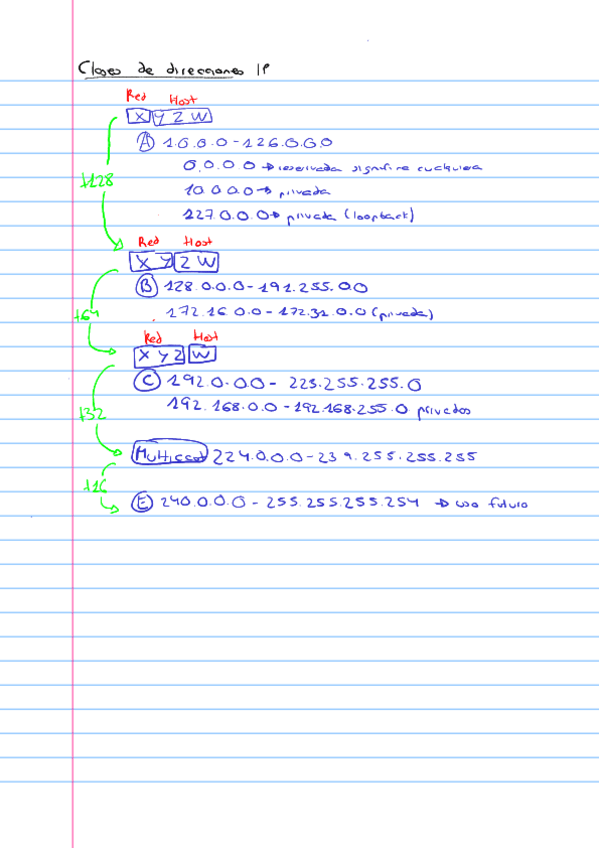 Clases de direcciones IP
Red Host
X Y Z W
A 1.0.0.0 - 126.0.0.0
0.0.0.0 → reservada significa cualquiera
+128
10.0.0.0 → privada
127.0.0.0 → privada (loopback)
Red Host
X Y Z W
B 128.0.0.0 - 191.255.0.0
+64
172.16.0.0 - 172.31.0.0 (privada)
Red Host
X Y Z W
C 192.0.0.0 - 223.255.255.0
+32
192.168.0.0 - 192.168.255.0 privados
Multicast 224.0.0.0 - 239.255.255.255
+16
E 240.0.0.0 - 255.255.255.254 → uso futuro